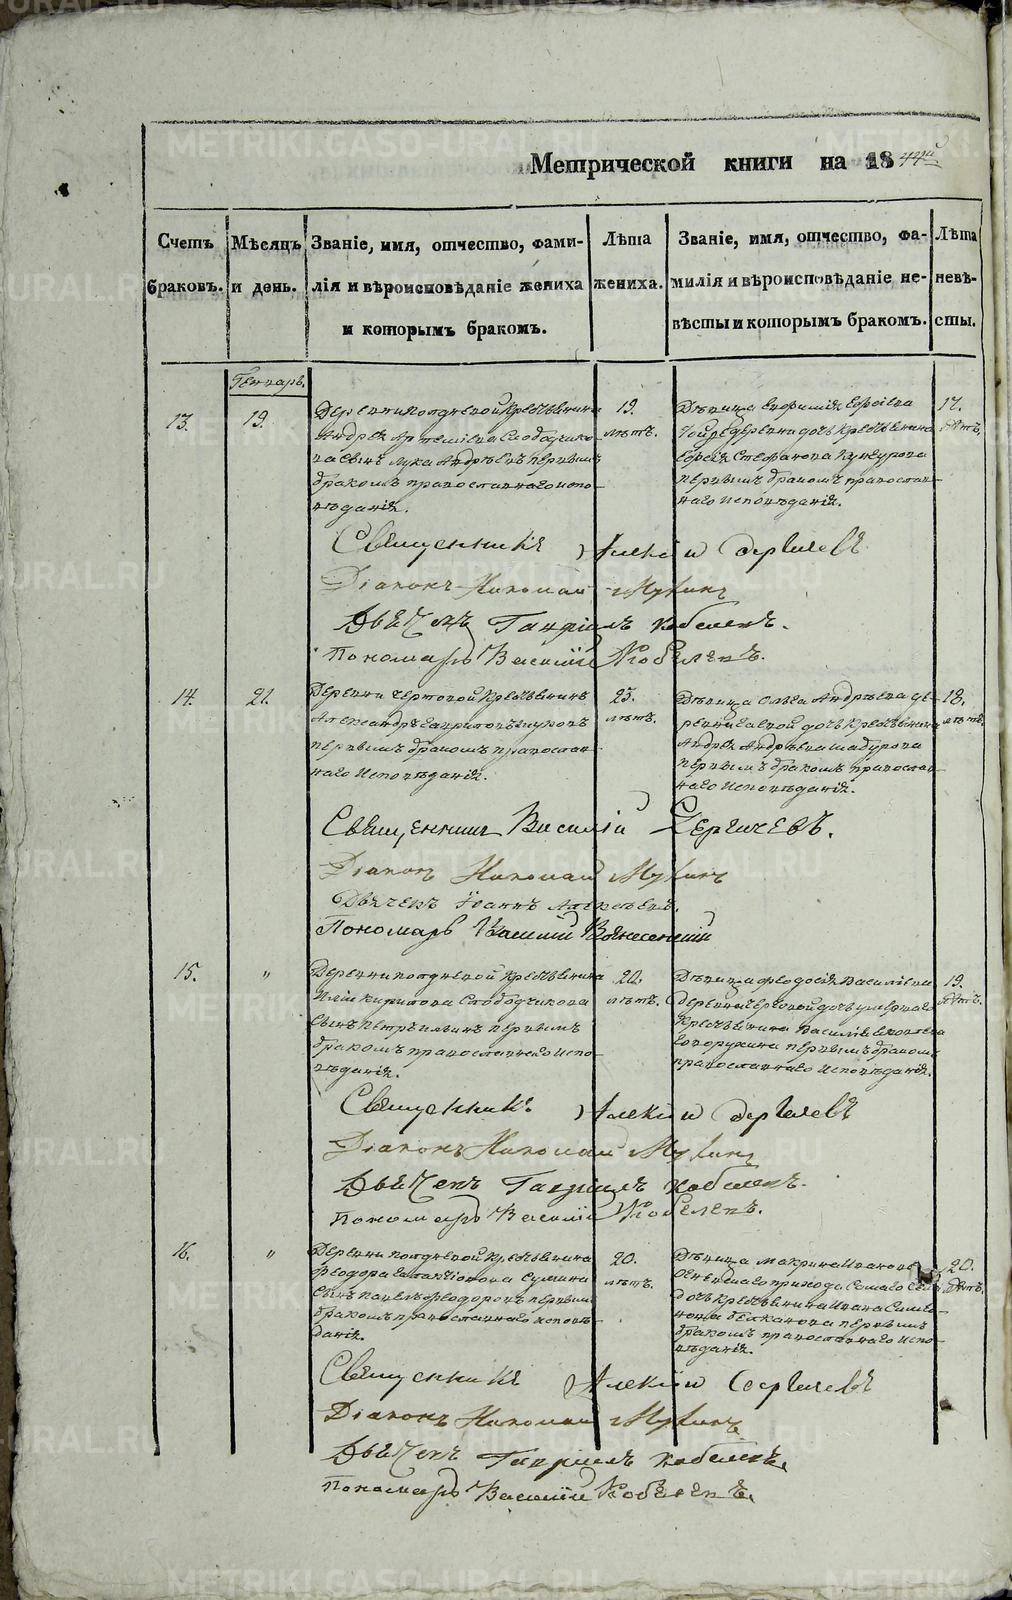 METRIKI.GASO-URAL.RU
Метрической книги на 1844й
Счетъ браковъ.
Мѣсяцъ и день.
Званіе, имя, отчество, фами-
лія и вѣроисповѣданіе жениха
и которымъ бракомъ.
Лѣта жениха.
Званіе, имя, отчество, фа-
милія и вѣроисповѣданіе не-
вѣсты и которымъ бракомъ.
Лѣта невѣ-
сты.
Генварь.
13.
19.
Деревни Полдневой Крестьянина
Андрея Артемиева Слободчико-
ва сынъ Лука Андрѣевъ первымъ
бракомъ православнаго испо-
вѣданія.
19.
лѣтъ.
Дѣвица
дочь Крестьянина
Стефанова
первымъ бракомъ православ-
наго исповѣданія.
17.
лѣтъ.
Священникъ Алексій Сергіевъ
Діаконъ Николай Мухинъ
Дьячекъ Гавріилъ Кобелевъ.
Пономарь Василій Кобелевъ.
14.
21.
Деревни Чертовой Крестьянинъ
Александръ
первымъ бракомъ православ-
наго исповѣданія.
23.
лѣтъ.
Дѣвица Ольга Андрѣева де-
ревни дочь Крестьянина
Андрея Андрѣева Шабурова
первымъ бракомъ православ-
наго исповѣданія.
18.
лѣтъ.
Священникъ Василій Сергичевъ.
Діаконъ Николай Мухинъ
Дьячекъ Іоаннъ Алексѣевъ.
Пономарь Василій Вознесенскій
15.
"
Деревни Полдневой Крестьянина
Иліи Кирилова Слободчикова
сынъ Петръ Ильинъ первымъ
бракомъ православнаго испо-
вѣданія.
22.
лѣтъ.
Дѣвица Феодосія Василіева
деревни дочь умершаго
Крестьянина Василія
первымъ бракомъ
православнаго исповѣданія.
19.
лѣтъ.
Священникъ Алексій Сергіевъ
Діаконъ Николай Мухинъ
Дьячекъ Гавріилъ Кобелевъ.
Пономарь Василій Кобелевъ.
16.
"
Деревни Полдневой Крестьянина
Феодора Сумина
сынъ Павелъ Феодоровъ первымъ
бракомъ православнаго исповѣ-
данія.
20.
лѣтъ.
Дѣвица Макрина Иванова
прихода
дочь Крестьянина Ивана Симео-
нова первымъ
бракомъ православнаго испо-
вѣданія.
20.
лѣтъ.
Священникъ Алексій Сергіевъ
Діаконъ Николай Мухинъ
Дьячекъ Гавріилъ Кобелевъ.
Пономарь Василій Кобелевъ.